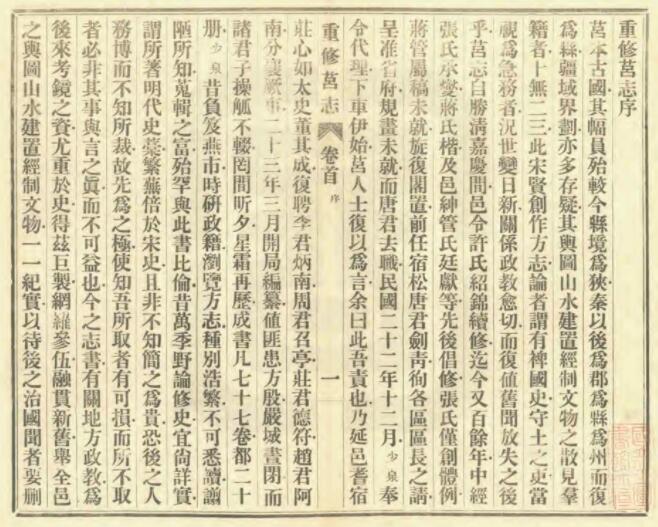 重修莒志序
莒本古國其幅員殆較今縣境為狹秦以後為郡為縣為州而復
為縣疆域界劃亦多存疑其輿圖山水建置經制文物之散見羣
籍者十無二三此宋賢創作方志論者謂有裨國史守土之吏當
視為急務者況世變日新關係政教愈切而復值舊聞放失之後
乎莒志自勝清嘉慶間邑令許氏紹錦續修迄今又百餘年中經
張氏承燮蔣氏楷及邑紳管氏廷獻等先後倡修張氏僅創體例
蔣管屬稿未就旋復閣置前任宿松唐君劍青徇各區區長之請
呈准省府規畫未就而唐君去職民國二十二年十二月少泉奉
令代理下車伊始莒人士復以為言余曰此吾責也乃延邑耆宿
重修莒志 卷首 序 一
莊心如太史董其成復聘李君炳南周君召亭莊君德符趙君阿
南分襄厥事二十三年三月開局編纂值匪患方殷嚴城晝閉而
諸君子操觚不輟罔間昕夕星霜再歷成書凡七十七卷都二十
册少泉昔負笈燕市時研政籍瀏覽方志種別浩繁不可悉讀譾
陋所知蒐輯之富殆罕與此書比倫昔萬季野論修史宜尙詳實
謂所著明代史藁繁蕪倍於宋史且非不知簡之為貴恐後之人
務博而不知所裁故先為之極使知吾所取者有可損而所不取
者必非其事與言之眞而不可益也今之志書有關地方政教為
後來考鏡之資尤重於史得茲巨製網羅參伍融貫新舊舉全邑
之輿圖山水建置經制文物一一紀實以待後之治國聞者要刪